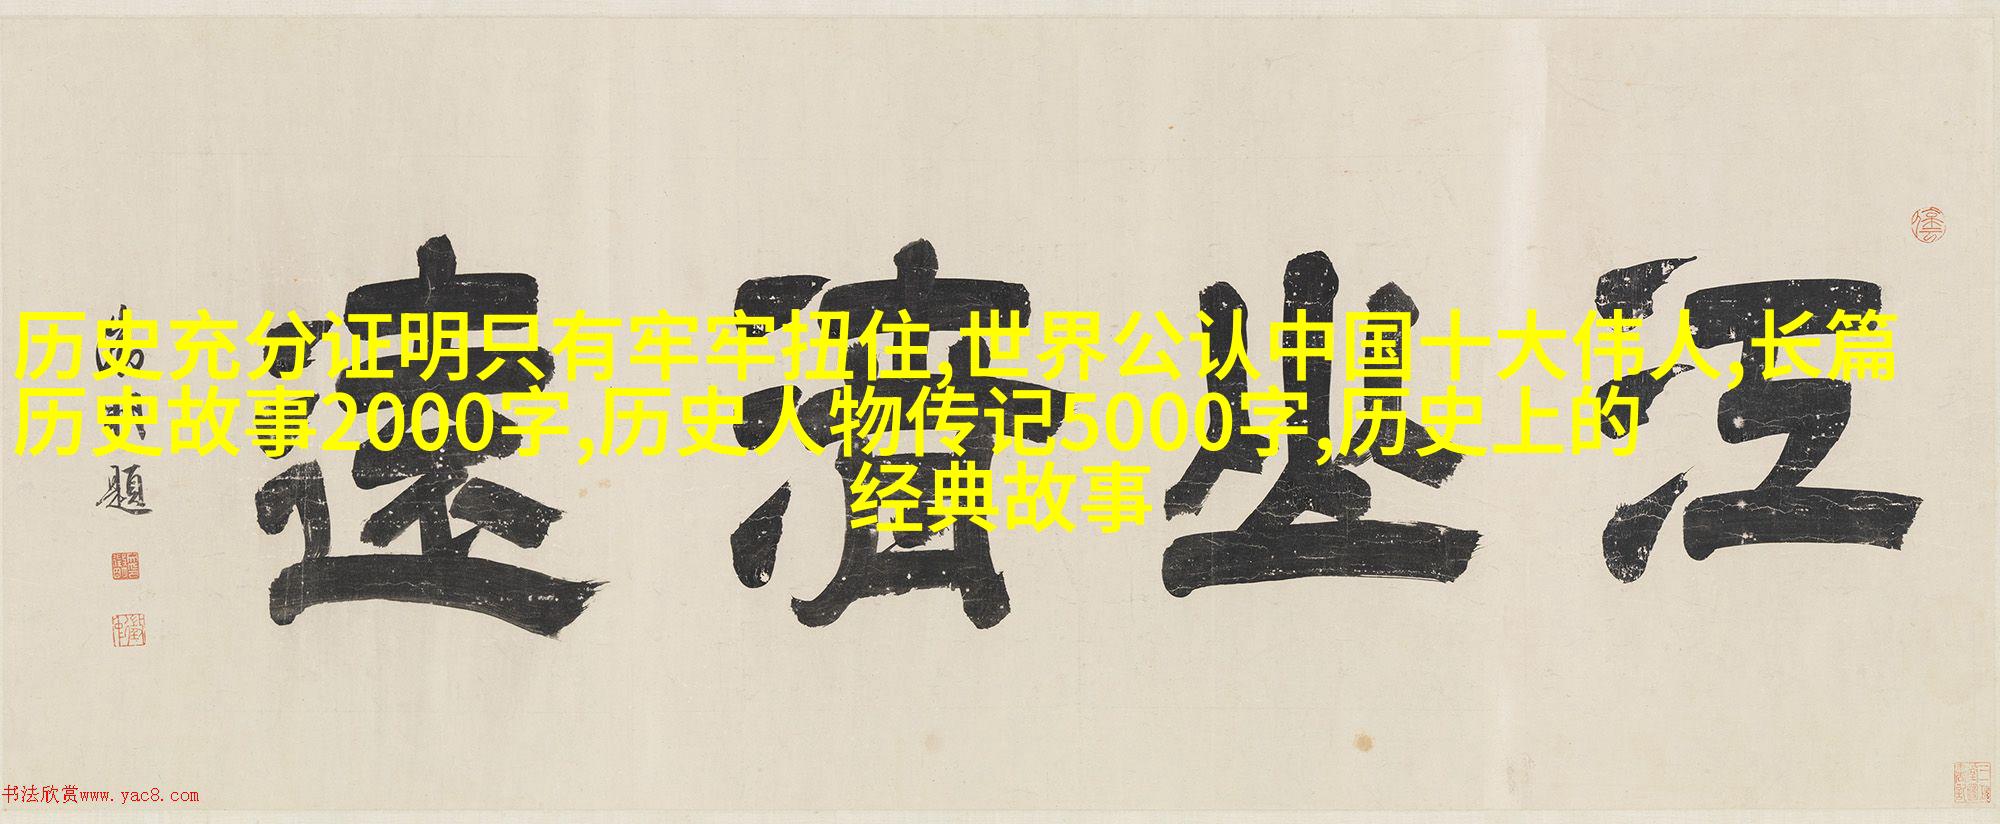 历史充分证明只有牢牢扭住,世界公认中国十大伟人,长篇
历史故事2000字,历史人物传记5000字,历史上的
经典故事
江山遠
題
书法欣赏www.yac8.com